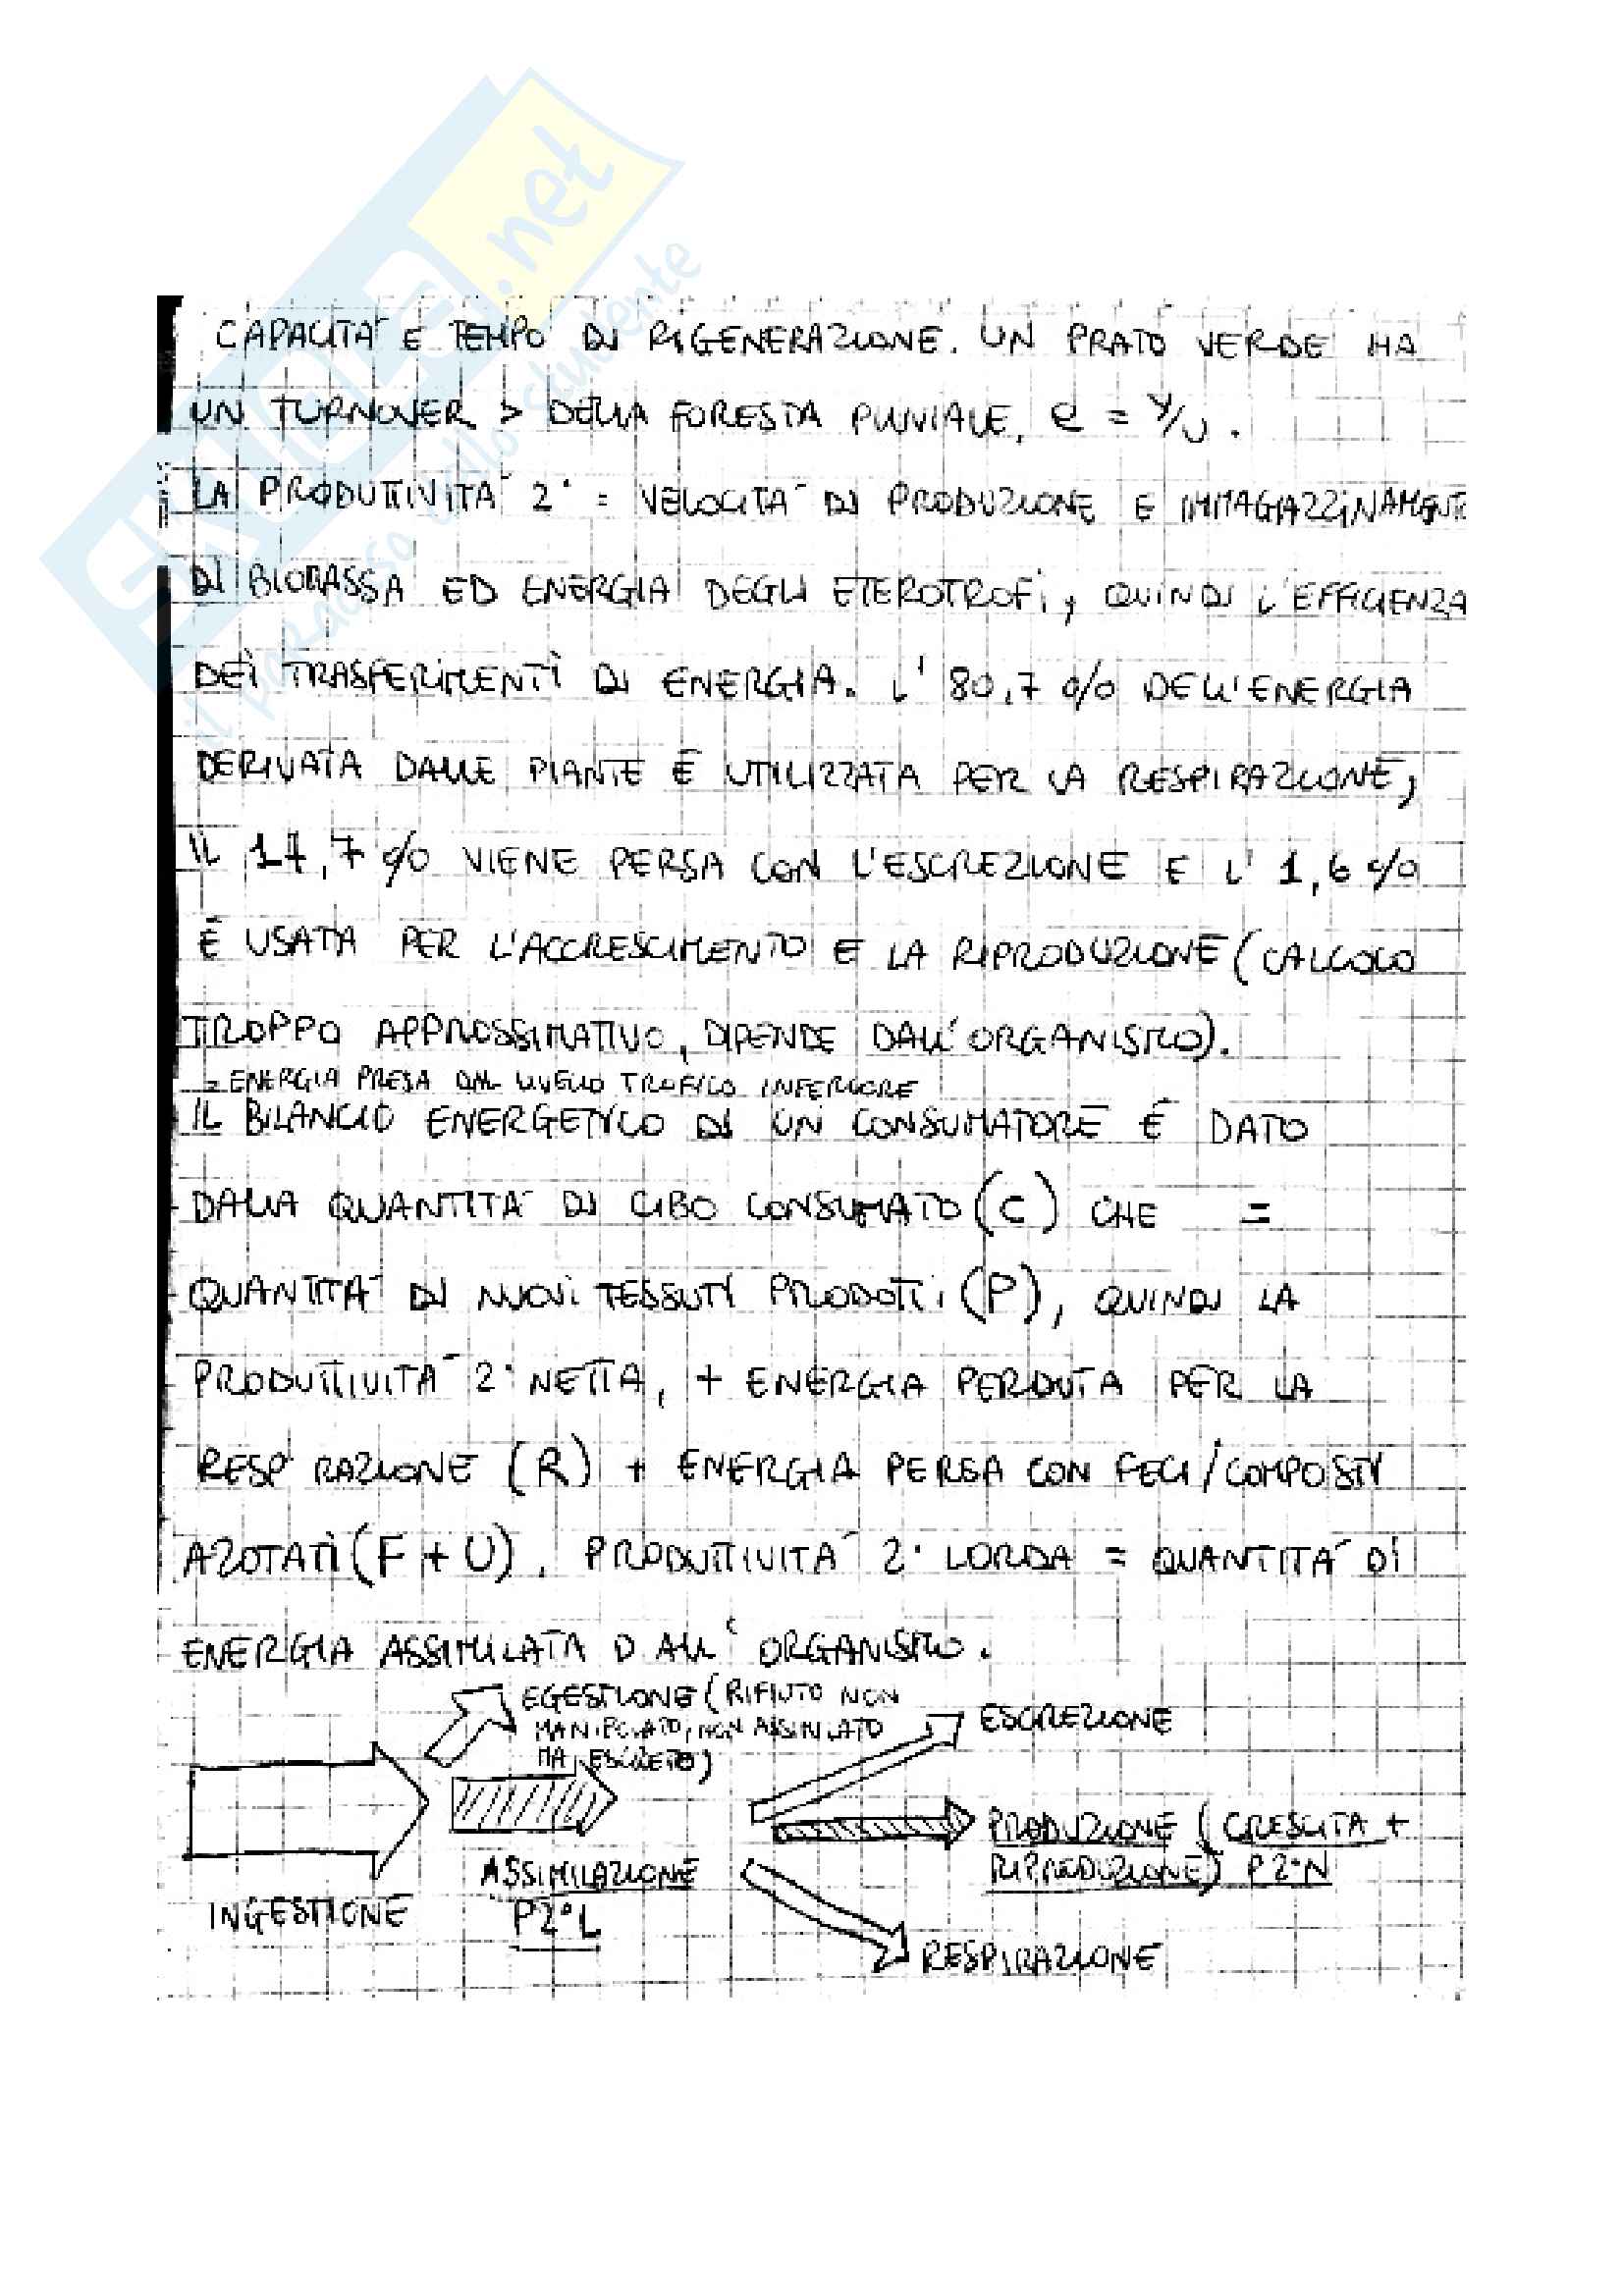 SKUOLA.net
il paradiso dello studente
CAPACITÀ E TEMPO DI RIGENERAZIONE. UN PRATO VERDE HA
UN TURNOVER > DELLA FORESTA PLUVIALE. e = Y/U.
LA PRODUTTIVITÀ 2° = VELOCITÀ DI PRODUZIONE E IMMAGAZZINAMENTO
DI BIOMASSA ED ENERGIA DEGLI ETEROTROFI, QUINDI L'EFFICIENZA
DEI TRASFERIMENTI DI ENERGIA. L'80,7% DELL'ENERGIA
DERIVATA DALLE PIANTE È UTILIZZATA PER LA RESPIRAZIONE,
IL 17,7% VIENE PERSA CON L'ESCREZIONE E L'1,6%
È USATA PER L'ACCRESCIMENTO E LA RIPRODUZIONE (CALCOLO
TROPPO APPROSSIMATIVO, DIPENDE DALL'ORGANISMO).
= ENERGIA PRESA DAL LIVELLO TROFICO INFERIORE
IL BILANCIO ENERGETICO DI UN CONSUMATORE È DATO
DALLA QUANTITÀ DI CIBO CONSUMATO (C) CHE =
QUANTITÀ DI NUOVI TESSUTI PRODOTTI (P), QUINDI LA
PRODUTTIVITÀ 2° NETTA, + ENERGIA PERDUTA PER LA
RESPIRAZIONE (R) + ENERGIA PERSA CON FECI/COMPOSTI
AZOTATI (F + U). PRODUTTIVITÀ 2° LORDA = QUANTITÀ DI
ENERGIA ASSIMILATA DALL'ORGANISMO.
EGESTIONE (RIFIUTO NON
MANIPOLATO, NON ASSIMILATO
MA ESCRETO)
ESCREZIONE
PRODUZIONE (CRESCITA +
RIPRODUZIONE) P2°N
ASSIMILAZIONE
P2°L
INGESTIONE
RESPIRAZIONE